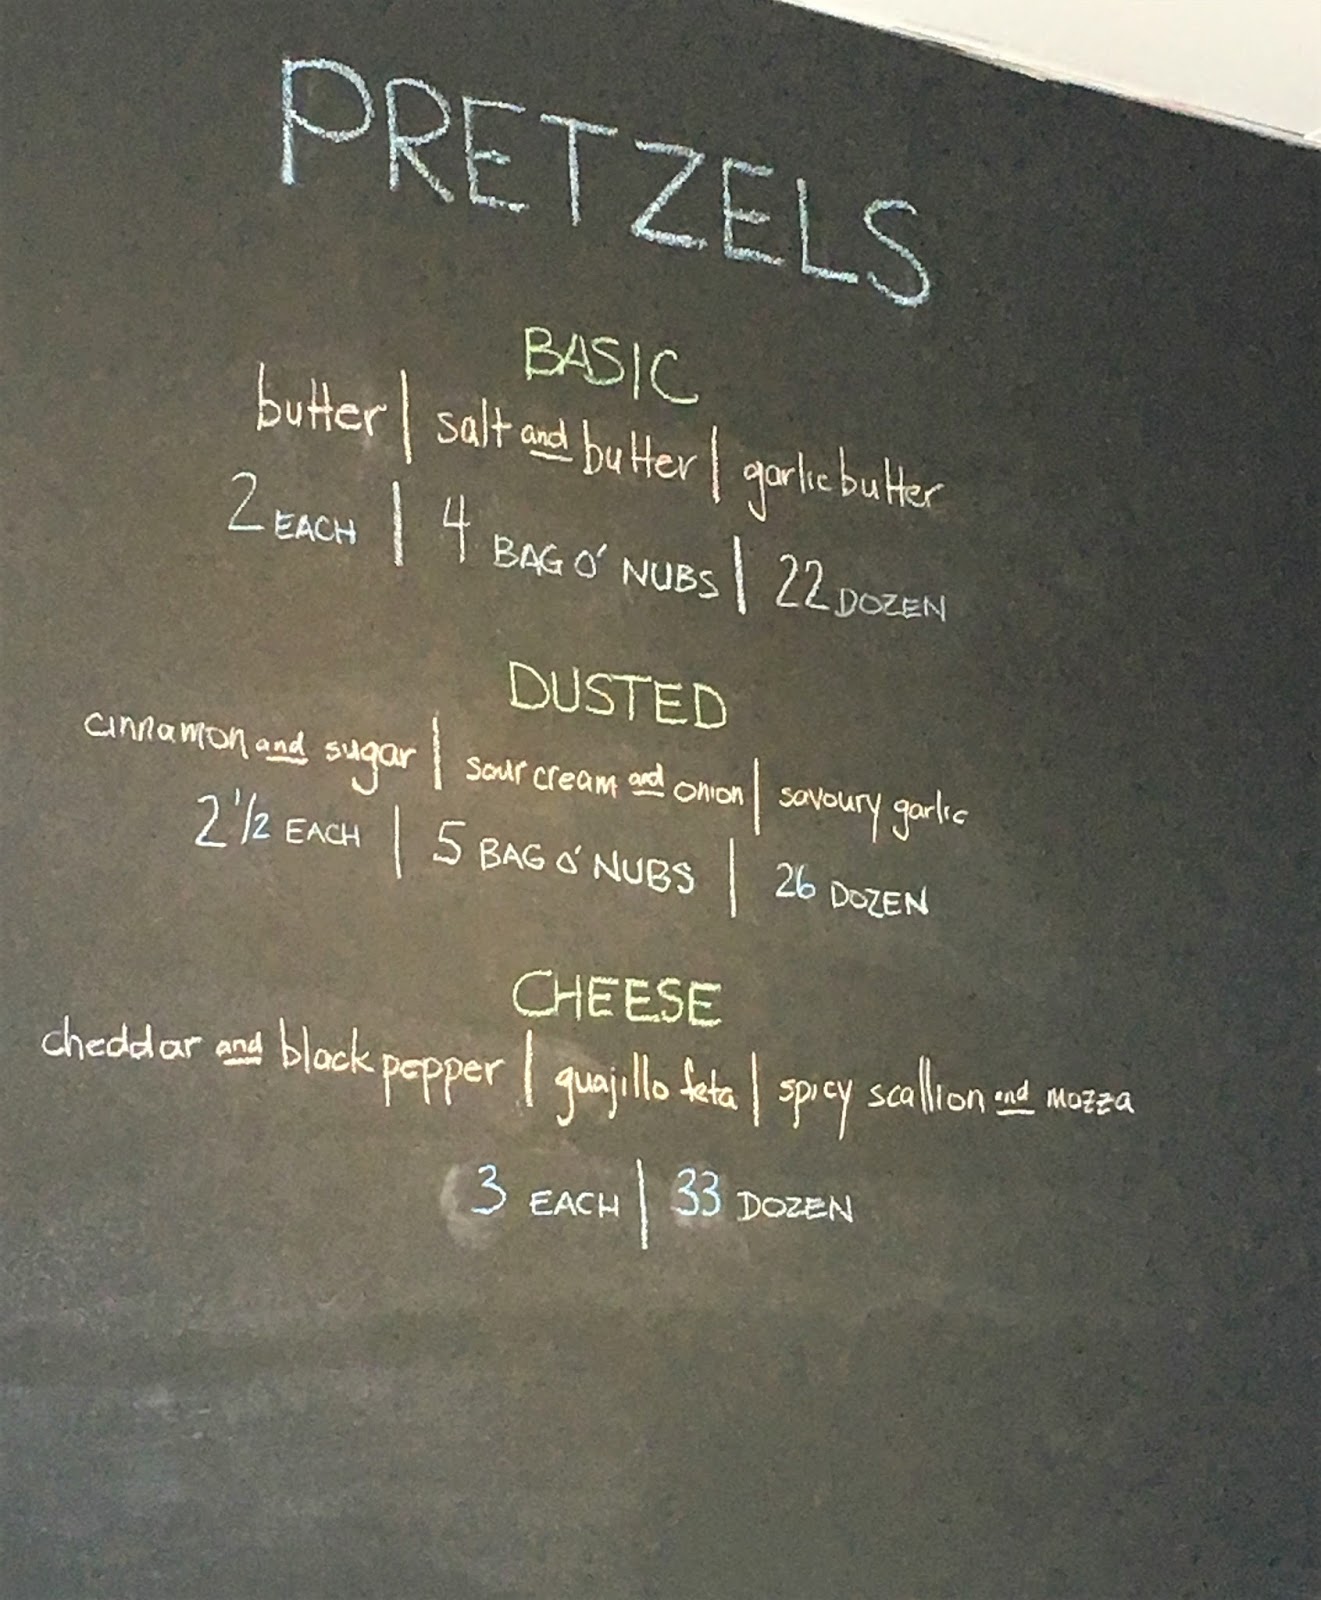 PRETZELS
BASIC
butter | salt and butter | garlic butter
2 EACH | 4 BAG O' NUBS | 22 DOZEN
DUSTED
cinnamon and sugar | sour cream and onion | savoury garlic
2 1/2 EACH | 5 BAG O' NUBS | 26 DOZEN
CHEESE
cheddar and black pepper | guajillo feta | spicy scallion and mozza
3 EACH | 33 DOZEN